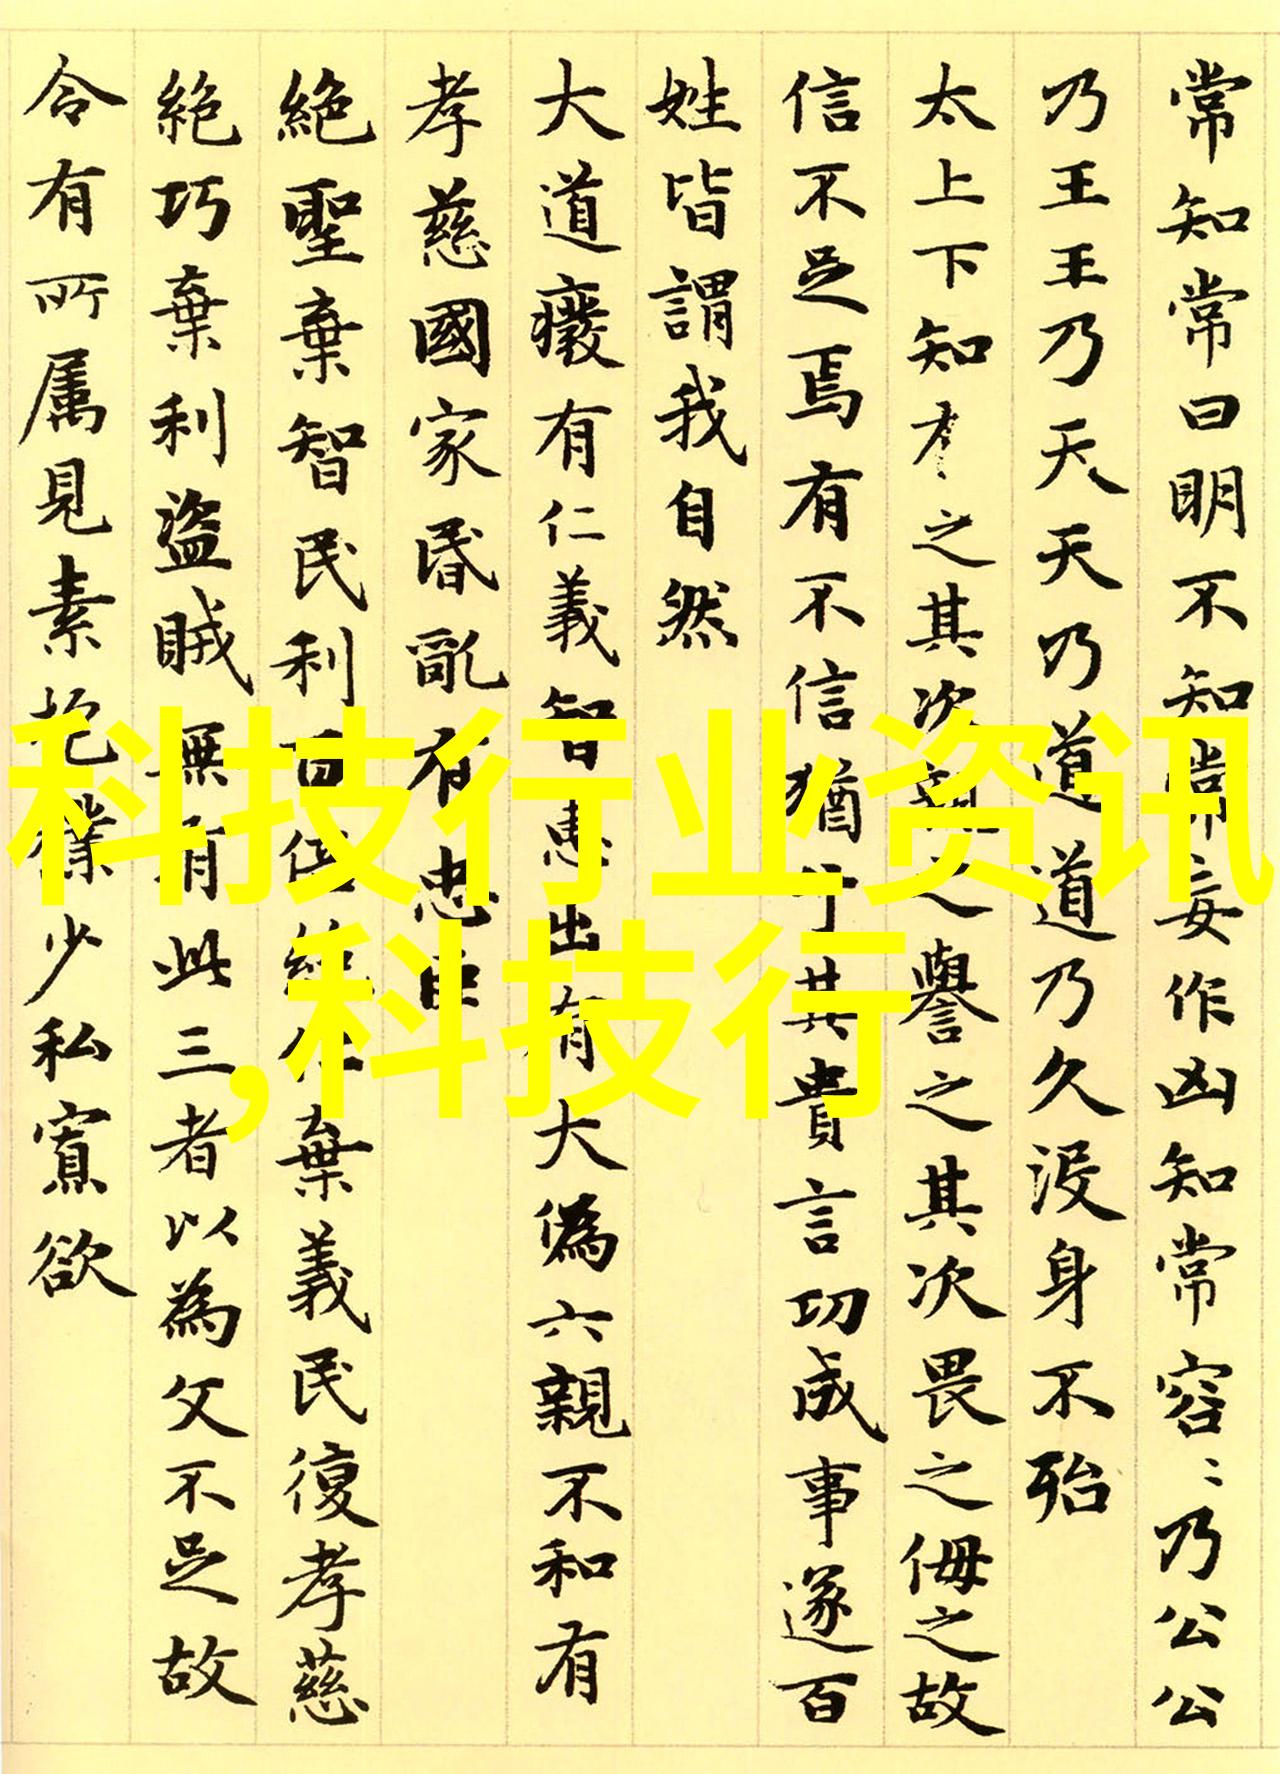 常知常曰明不知知常妄作凶知常容:乃公公
乃王王乃天天乃道道乃久没身不殆
太上下知有之其次親之譽之其次畏之侮之故
信不足焉有不信猶其貴言功成事遂百
姓皆謂我自然
大道癈有仁義智惠出有大偽六親不和有
孝慈國家昏亂有忠臣
絶聖棄智民利百倍絶仁棄義民復孝慈
絶巧棄利盜賊無有此三者以為文不足故
令有所属見素抱樸少私寡欲
科技行业资讯
,科技行